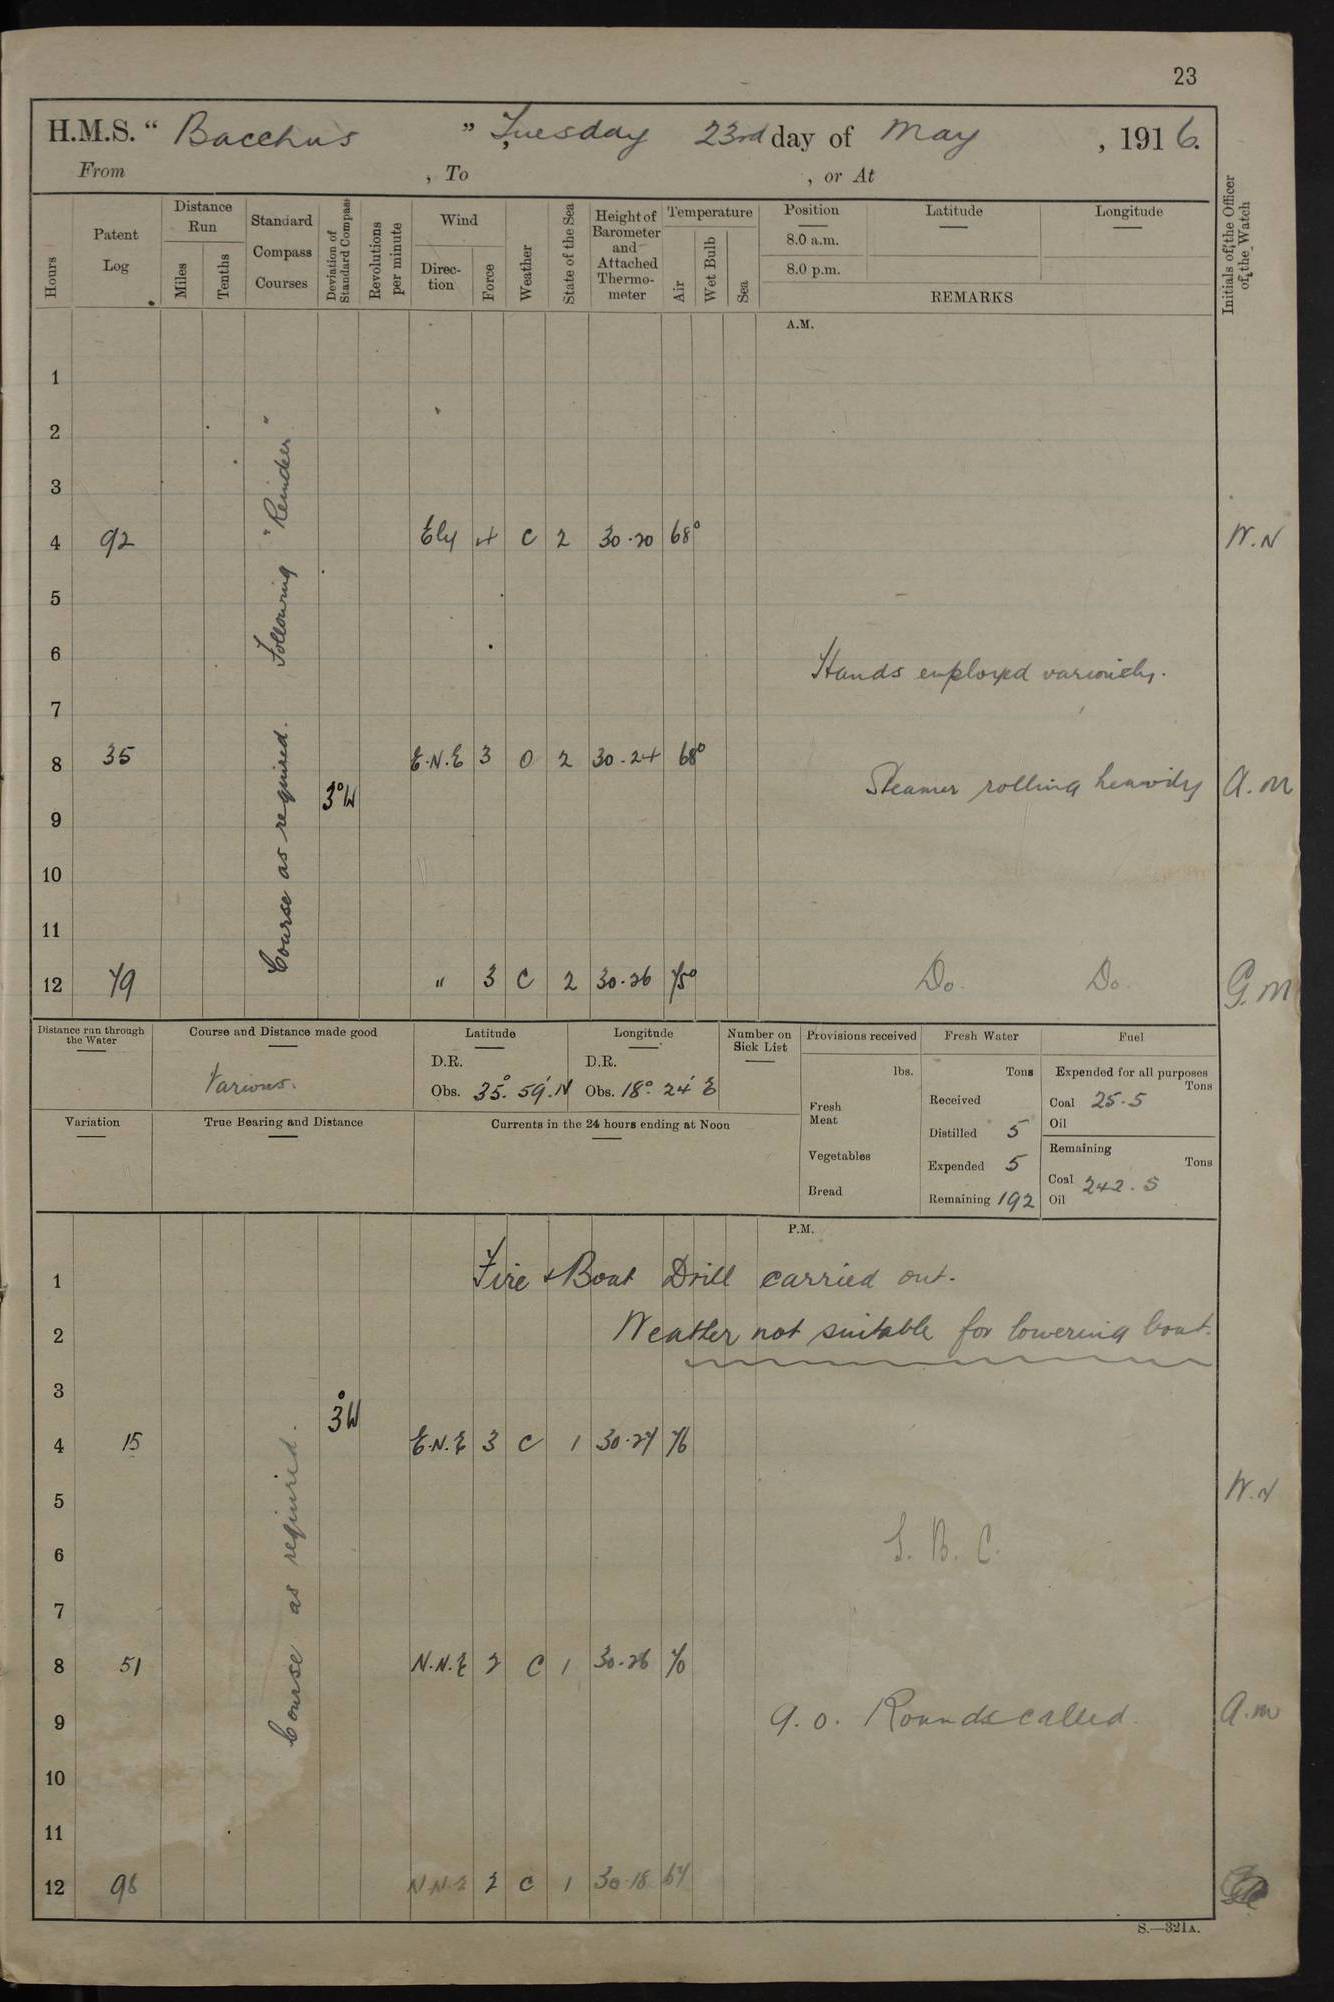 23
H.M.S. “ Bacchus ” , Tuesday 23rd day of May , 1916.
From , To , or At
Hours
Patent Log
Distance Run
Miles
Tenths
Standard Compass Courses
Deviation of Standard Compass
Revolutions per minute
Wind
Direction
Force
Weather
State of the Sea
Height of Barometer and Attached Thermometer
Temperature
Air
Wet Bulb
Sea
Position
8.0 a.m.
8.0 p.m.
Latitude
Longitude
REMARKS
Initials of the Officer of the Watch
A.M.
1
2
3
4 92 Ely 4 C 2 30.20 68° W.N
5
6
Hands employed variously.
7
8 35 E.N.E 3 O 2 30.24 68°
Steamer rolling heavily A.M
3°W
9
10
11
12 79 " 3 C 2 30.26 75° Do. Do. G.M
Course as required. Following "Reindeer"
Distance run through the Water
Course and Distance made good
Various.
Latitude
D.R.
Obs. 35°. 59'. N
Longitude
D.R.
Obs. 18°. 24' E
Number on Sick List
Provisions received
lbs.
Fresh Meat
Vegetables
Bread
Fresh Water
Tons
Received
Distilled 5
Expended 5
Remaining 192
Fuel
Expended for all purposes
Tons
Coal 25.5
Oil
Remaining
Tons
Coal 242.5
Oil
Variation
True Bearing and Distance
Currents in the 24 hours ending at Noon
P.M.
1 Fire & Boat Drill carried out.
2 Weather not suitable for lowering boat.
3
3°W
4 15 E.N.E 3 C 1 30.27 76
5 W.N
6 S. B. C.
7
8 51 N.N.E 2 C 1 30.26 70
9 9.0. Rounds called. A.M
10
11
12 98 N.N.E 2 C 1 30.18 67
Course as required.
S.—321A.